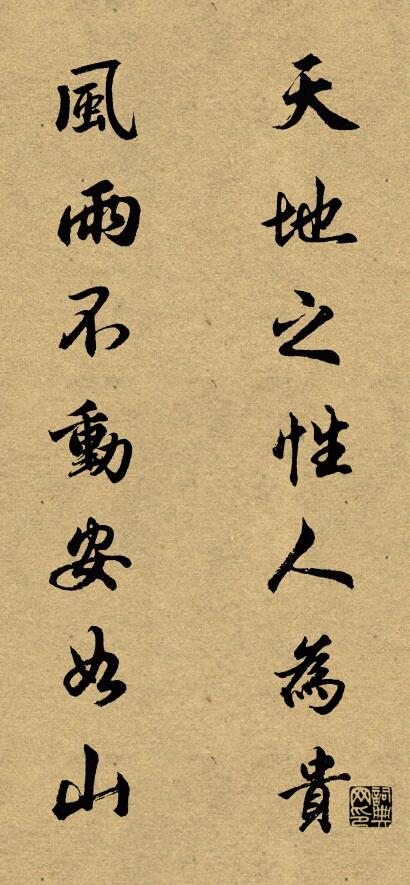 天地之性人為貴
風雨不動安如山
詞典网印